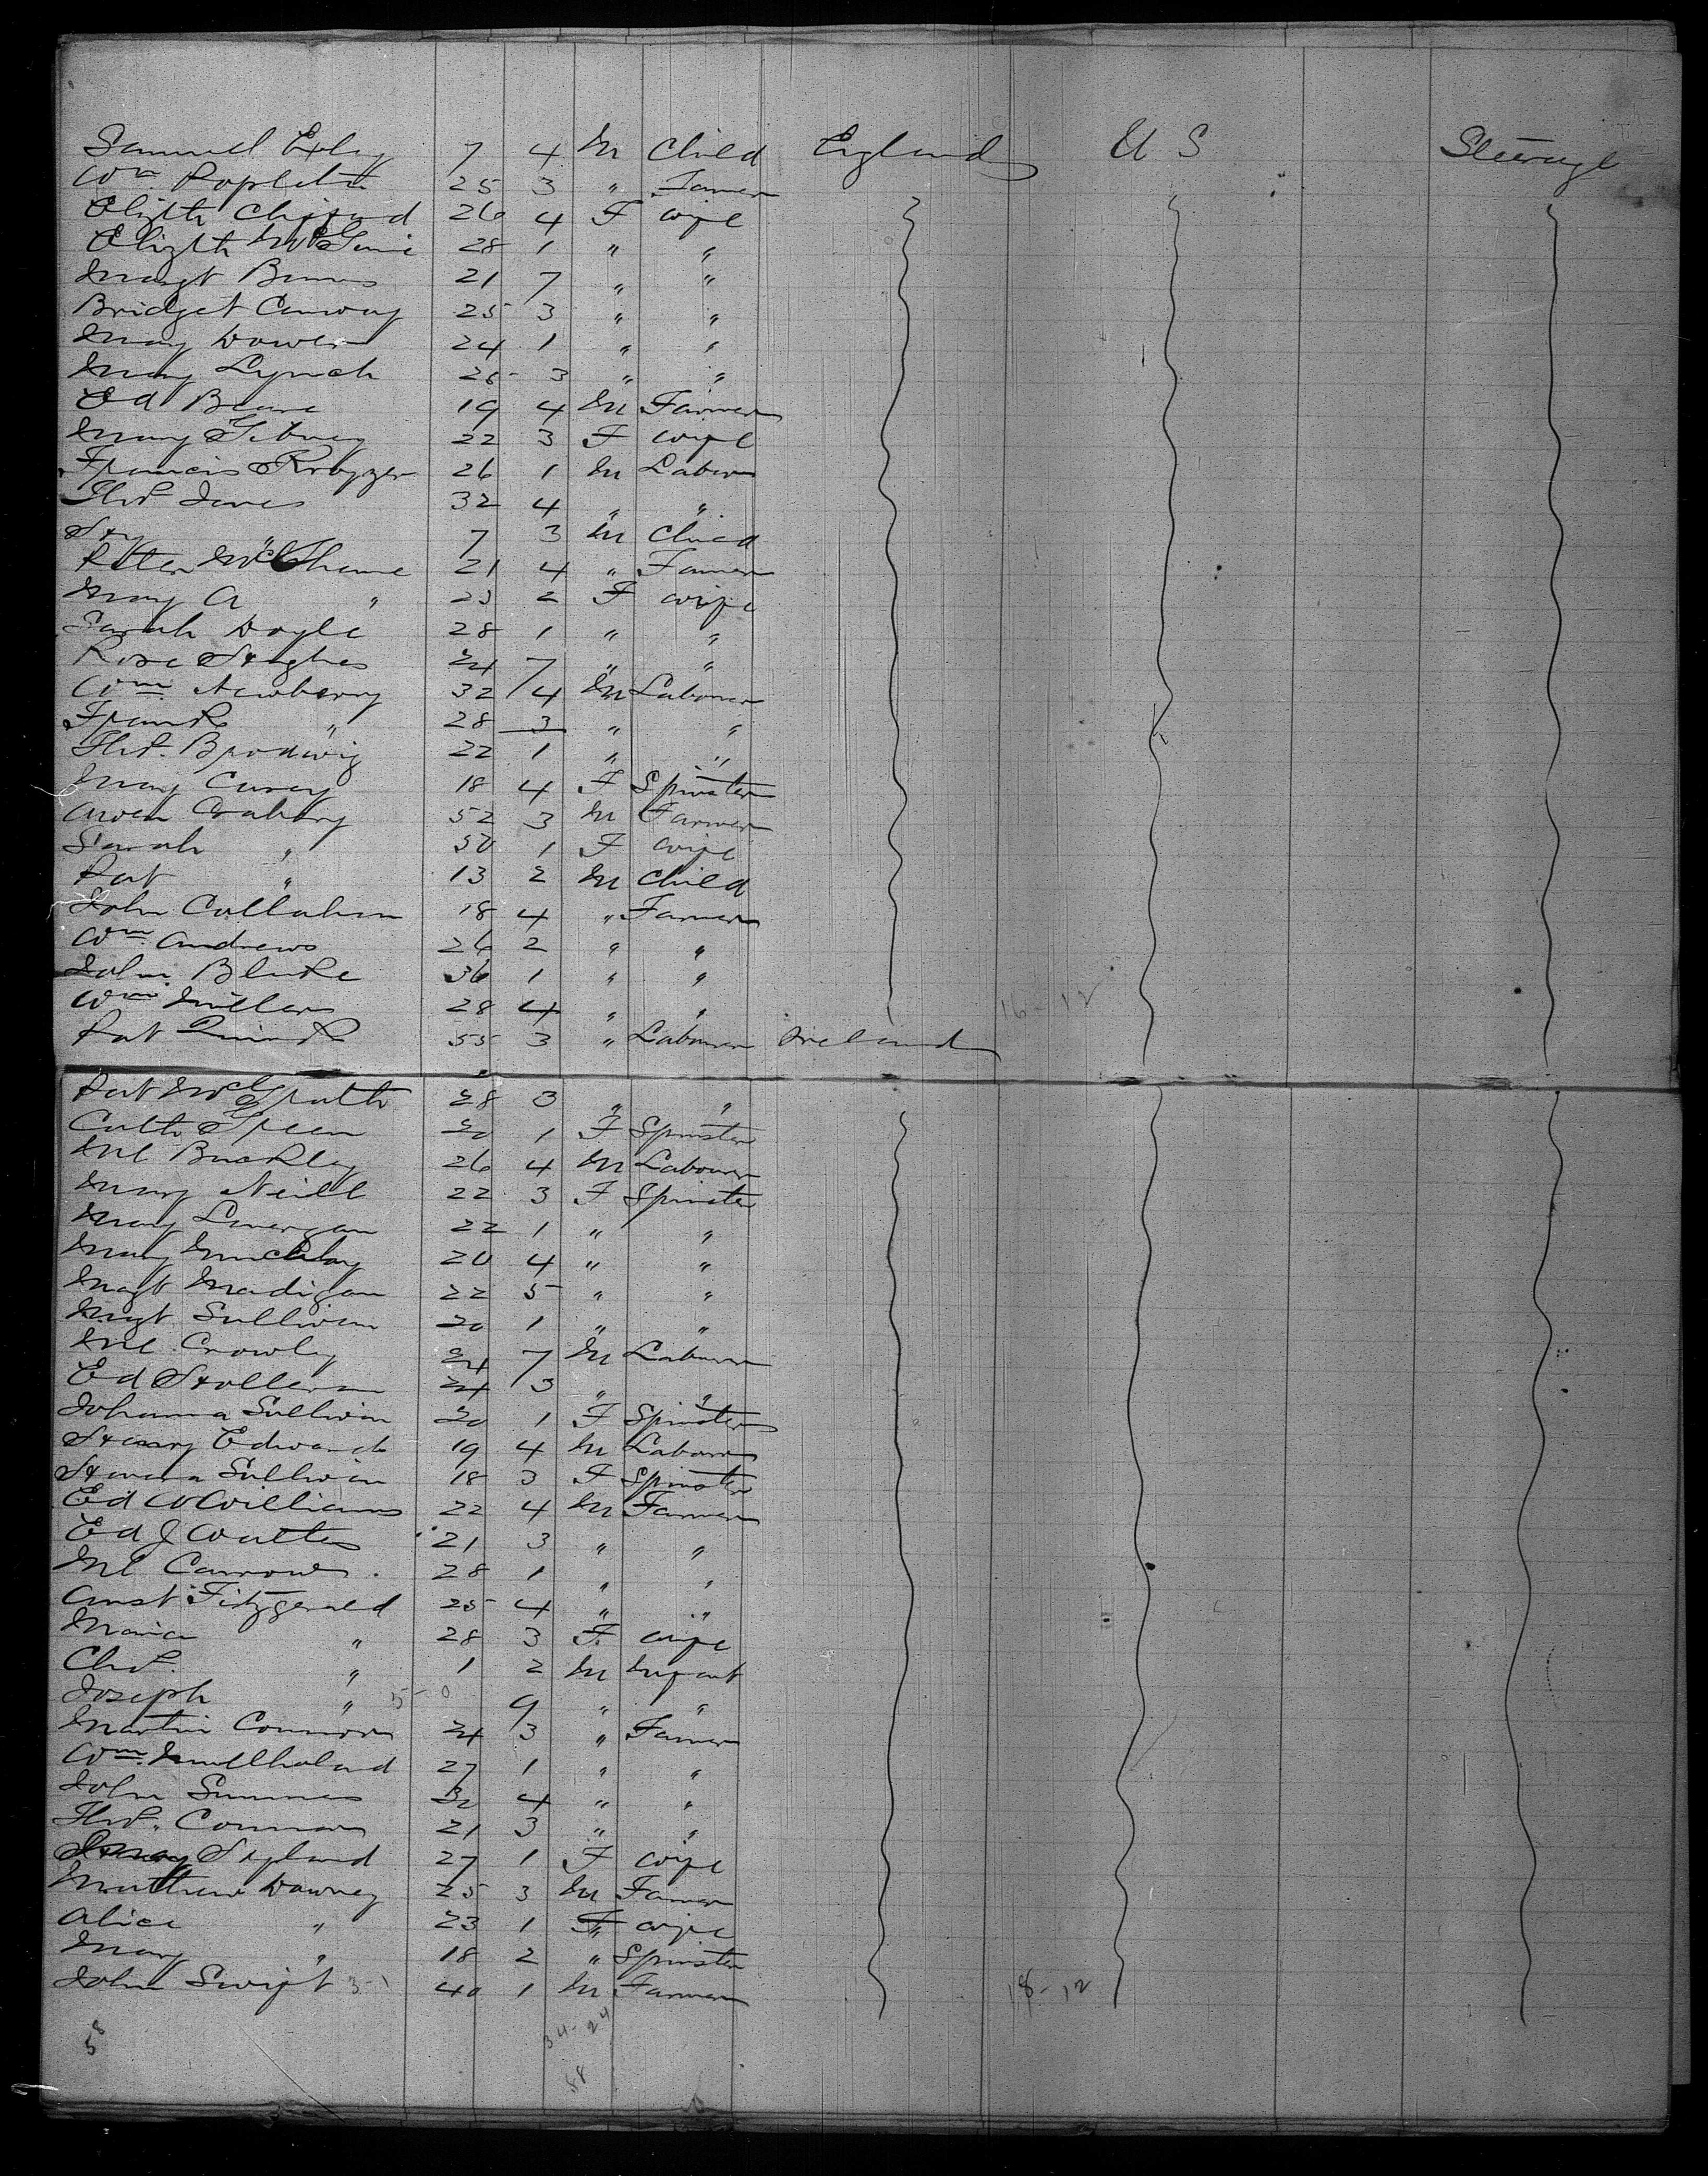 Samuel Exley 7 4 M Child England U S Steerage
Wm. Popleton 25 3 " Farmer
Elizth Clifford 26 4 F wife
Elizth McGenie 28 1 " "
Margt Burns 21 7 " "
Bridget Conway 25 3 " "
Mary Dower 24 1 " "
Mary Lynch 25 3 " "
Ed Beare 19 4 M Farmer
Mary Gibney 22 3 F wife
Francis 26 1 M Laborer
Thos Jones 32 4 " "
Hy " 7 3 M Child
Peter McShane 21 4 " Farmer
Mary A " 23 2 F wife
Sarah Doyle 28 1 " "
Rose Hughes 24 7 " "
Wm Newberry 32 4 M Labourer
Frank " 28 3 " "
Thos. 22 1 " "
Mary Curey 18 4 F Spinster
Owen 52 3 M Farmer
Sarah " 50 1 F wife
Pat " 13 2 M Child
John Callahan 18 4 " Farmer
Wm Andrews 26 2 " "
John Blake 36 1 " "
Wm Millars 28 4 " " 16-12
Pat 55 3 " Labourer Ireland
Pat McGrath 28 3 " "
Cath Green 20 1 F Spinster
Ml Buckley 26 4 M Labourer
Mary Neill 22 3 F Spinster
Mary Lonergan 22 1 " "
Mary 20 4 " "
Magt Madigan 22 5 " "
Margt Sullivan 20 1 " "
Ml Crowley 24 7 M Labourer
Ed Holleran 24 3 " "
Johanna Sullivan 20 1 F Spinster
Henry Edwards 19 4 M Labourer
Honora Sullivan 18 3 F Spinster
Ed W Williams 22 4 M Farmer
Ed J Watters 21 3 " "
Ml 28 1 " "
Aust Fitzgerald 25 4 " "
Maria " 28 3 F wife
Chs. " 1 2 M Infant
Joseph " 5-0 9 " "
Martin Connors 24 3 " Farmer
Wm Mullholand 27 1 " "
John Summers 30 4 " "
Thos. Connors 21 3 " "
Mary Hyland 27 1 F wife
Matthew Downey 25 3 M Farmer
Alice " 23 1 F wife
Mary " 18 2 " Spinster
John Swift 3-1 40 1 M Farmer 18-12
58 34-24
58